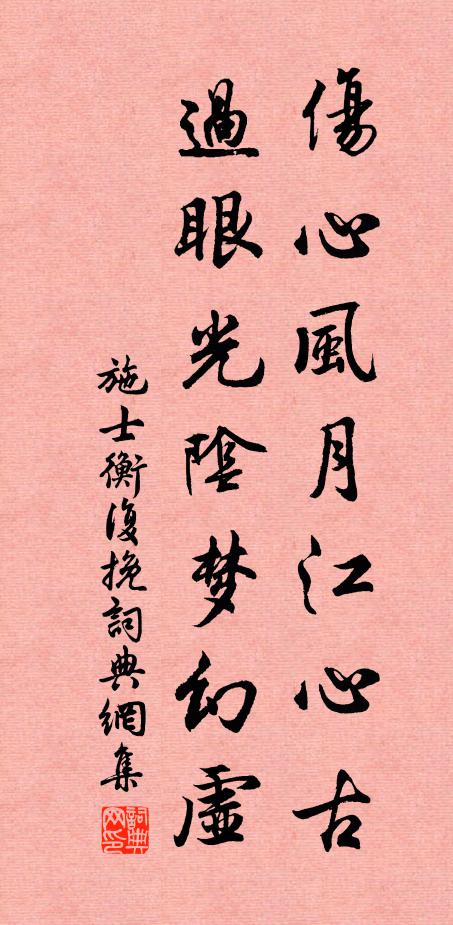 傷心風月江心古
過眼光陰梦幻虛
施士衡復挽詞典網集
詞典网印